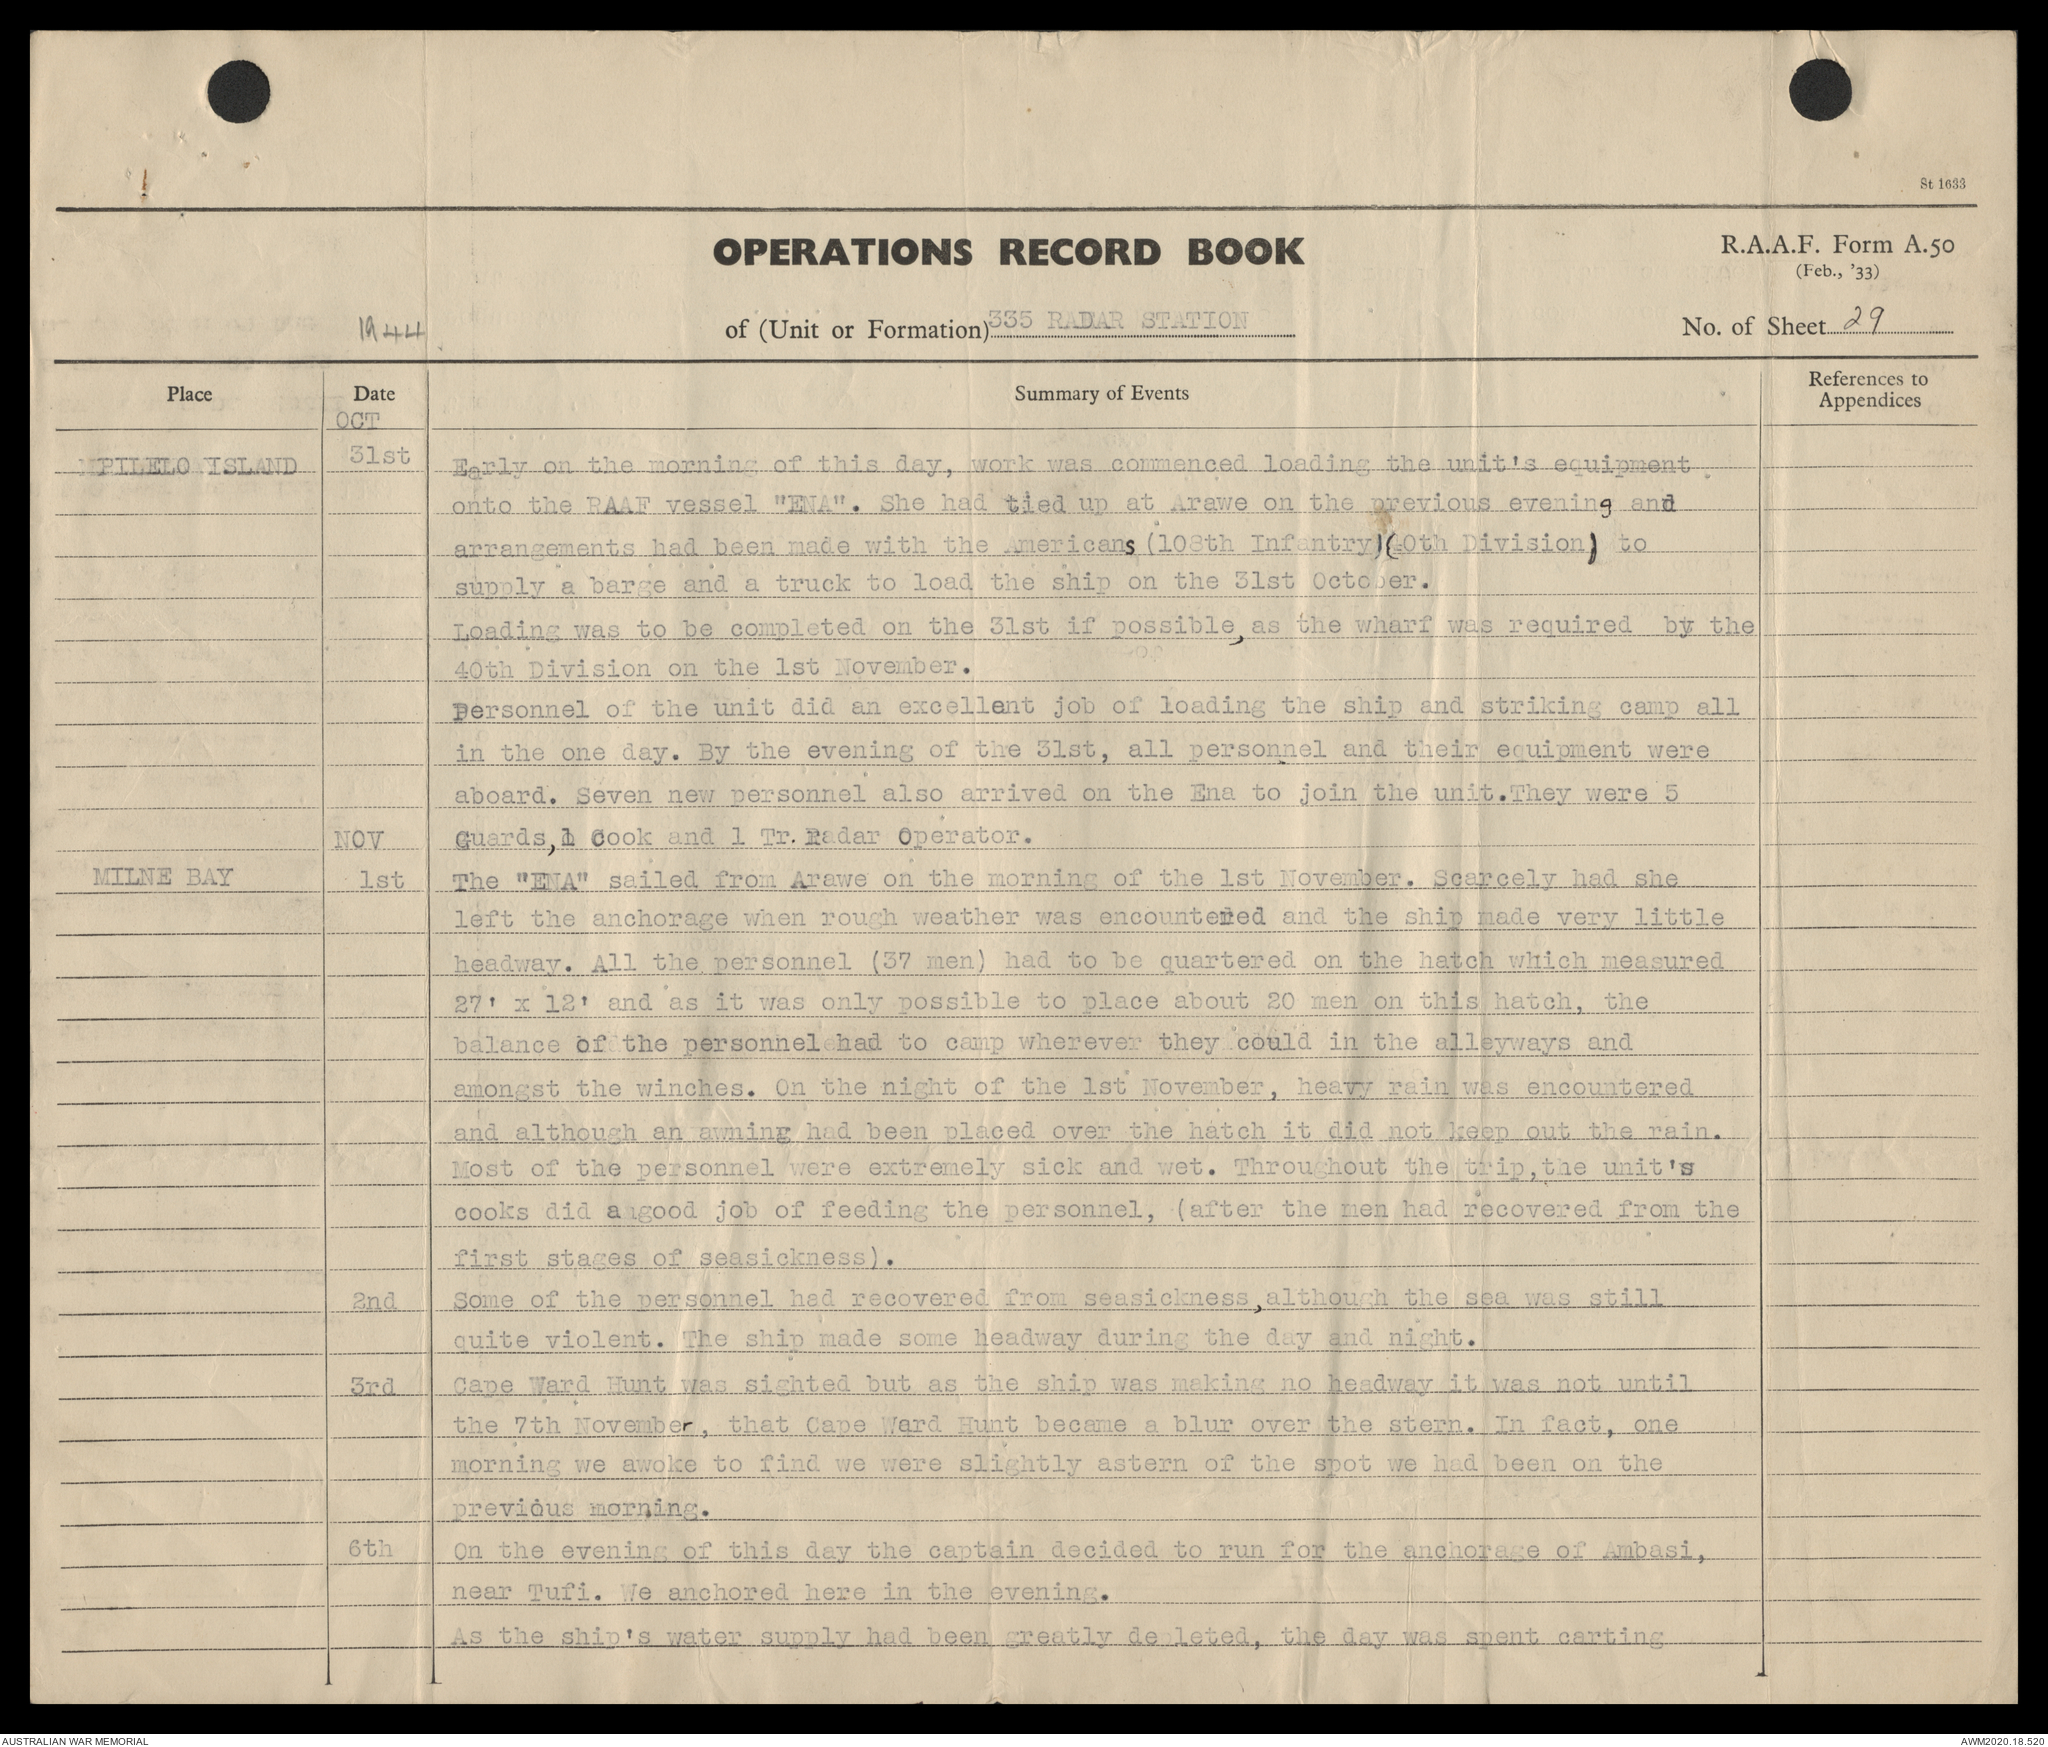 St 1633
OPERATIONS RECORD BOOK
R.A.A.F. Form A.50
(Feb., '33)
1944
of (Unit or Formation) 335 RADAR STATION
No. of Sheet 29
Place
Date
Summary of Events
References to
Appendices
OCT
PILELO ISLAND 31st Early on the morning of this day, work was commenced loading the unit's equipment.
onto the RAAF vessel "ENA". She had tied up at Arawe on the previous evening and
arrangements had been made with the Americans (108th Infantry)(40th Division) to
supply a barge and a truck to load the ship on the 31st October.
Loading was to be completed on the 31st if possible, as the wharf was required by the
40th Division on the 1st November.
Personnel of the unit did an excellent job of loading the ship and striking camp all
in the one day. By the evening of the 31st, all personnel and their equipment were
aboard. Seven new personnel also arrived on the Ena to join the unit.They were 5
NOV Guards, 1 Cook and 1 Tr. Radar Operator.
MILNE BAY 1st The "ENA" sailed from Arawe on the morning of the 1st November. Scarcely had she
left the anchorage when rough weather was encountered and the ship made very little
headway. All the personnel (37 men) had to be quartered on the hatch which measured
27' x 12' and as it was only possible to place about 20 men on this hatch, the
balance of the personnel had to camp wherever they could in the alleyways and
amongst the winches. On the night of the 1st November, heavy rain was encountered
and although an awning had been placed over the hatch it did not keep out the rain.
Most of the personnel were extremely sick and wet. Throughout the trip,the unit's
cooks did a good job of feeding the personnel, (after the men had recovered from the
first stages of seasickness).
2nd Some of the personnel had recovered from seasickness, although the sea was still
quite violent. The ship made some headway during the day and night.
3rd Cape Ward Hunt was sighted but as the ship was making no headway it was not until
the 7th November, that Cape Ward Hunt became a blur over the stern. In fact, one
morning we awoke to find we were slightly astern of the spot we had been on the
previous morning.
6th On the evening of this day the captain decided to run for the anchorage of Ambasi,
near Tufi. We anchored here in the evening.
As the ship's water supply had been greatly depleted, the day was spent carting
AUSTRALIAN WAR MEMORIAL
AWM2020.18.520